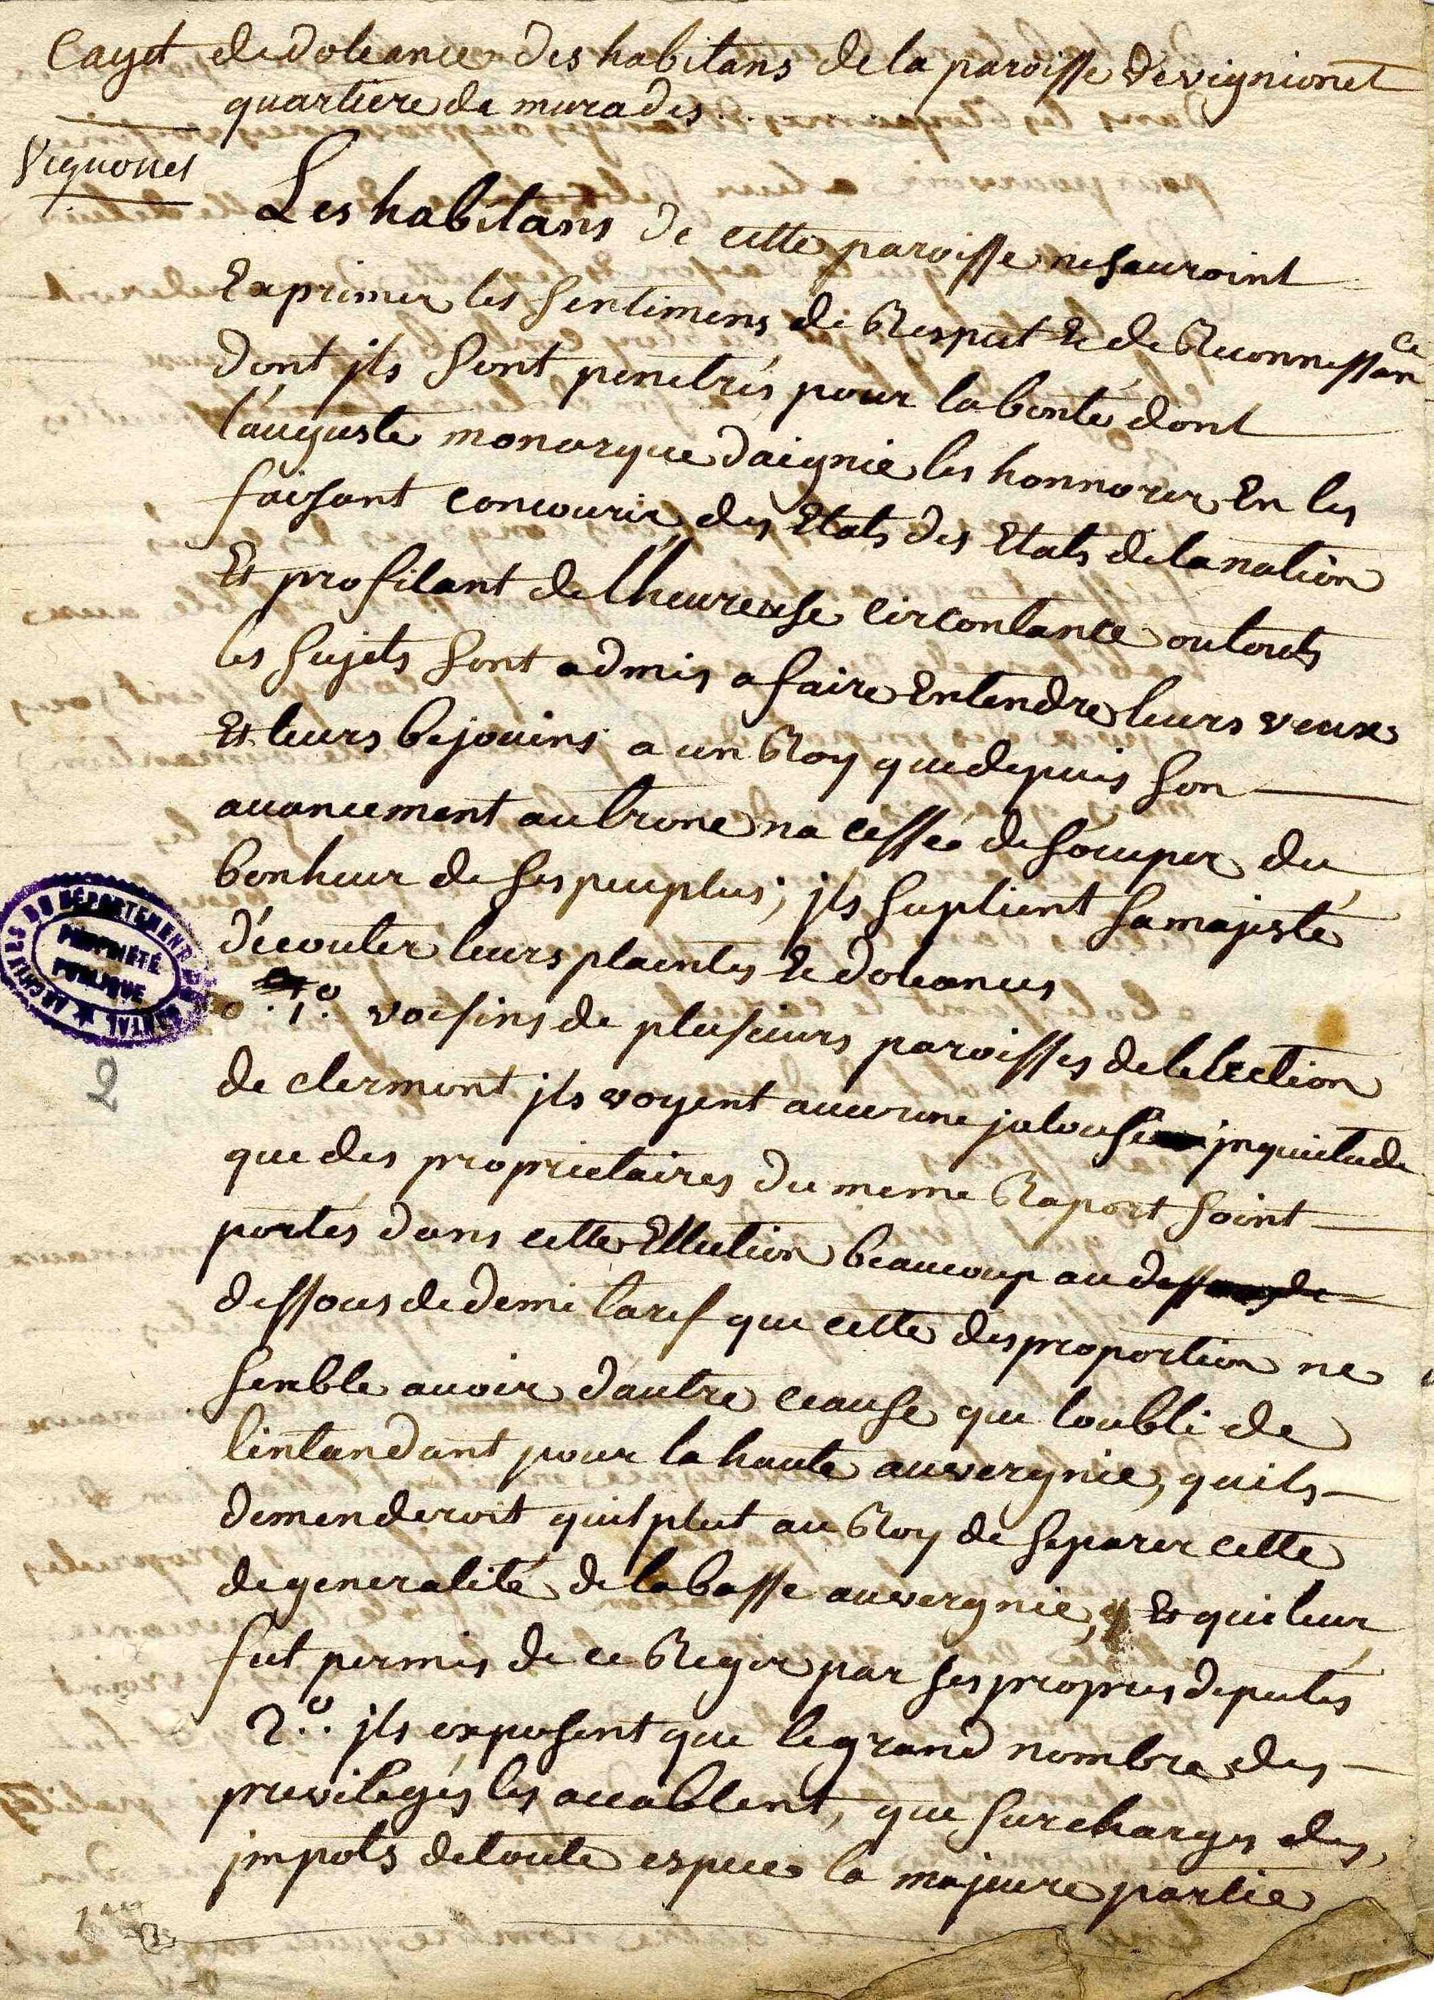 Cayet de doleance des habitans de la paroisse devignionet
quartiere de murades..
Vignonet
Les habitans de cette paroisse nesauroint
Exprimer les sentimens de Respect Et de Reconnessance
dont jls sont penetrés pour labonté dont
l'auguste monarque daignie les honnorer En les
faisant concourir des Etats des Etats delanation
Et profitant de lheureuse circontance ou touts
les sujets sont admis a faire Entendre leurs veux
Et leurs bejouins a un Roy quedepuis son
avancement autrone na cessée desoccuper du
bonheur de ses peuples; jls suplient samajesté
d'écouter leurs plaintes Et doleances
1o. voisins de plusieurs paroisses delelection
de clermont jls voyent aucune jalouse jnquietude
que des proprietaires du meme Raport soint
portés dans cette Ellection beaucoup au
dessous de demi tarif que cette desproportion ne
senble avoir d'autre ceause que loubli de
lintandant pour la haute auvergnie, quils
demenderoit quil plut au Roy de separer cette
degeneralité delabasse auvergnie, Et qui leur
fut permis de ce Reger par ses propres deputés
2o. jls exposent que legrand nombre des
previlegés les accablent, que surchargés des
jmpots detoute espece la majeure partie
ARCHIVES DU DÉPARTEMENT DU CANTAL
PROPRIÉTÉ
PUBLIQUE
2